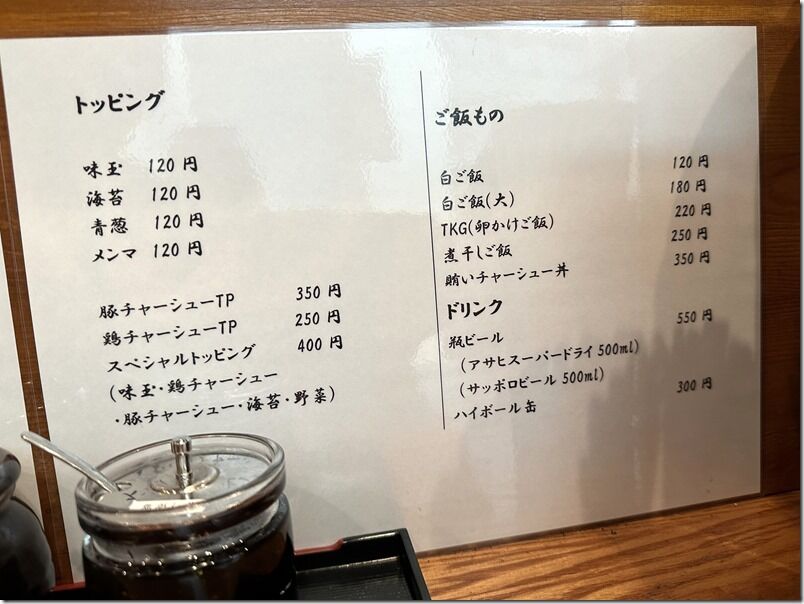 トッピング
味玉 120 円
海苔 120 円
青葱 120 円
メンマ 120 円
豚チャーシューTP 350 円
鶏チャーシューTP 250 円
スペシャルトッピング 400 円
(味玉・鶏チャーシュー
・豚チャーシュー・海苔・野菜)
ご飯もの
白ご飯 120 円
白ご飯(大) 180 円
TKG(卵かけご飯) 220 円
煮干しご飯 250 円
賄いチャーシュー丼 350 円
ドリンク
瓶ビール 550 円
(アサヒスーパードライ 500ml)
(サッポロビール 500ml)
ハイボール缶 300 円